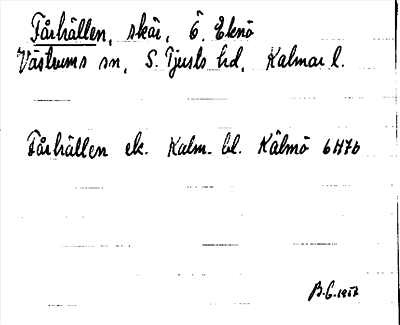 Fårhällen, skär, Ö. Eknö
Västrums sn, S. Tjusts hd, Kalmar l.
Fårhällen ek. Kalm. bl. Källmö 6H7b
B.G. 1957